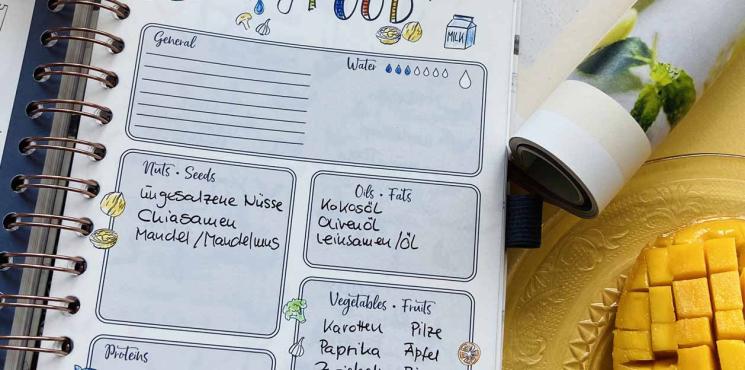 FOOD
MILK
General
Water
Nuts • Seeds
ungesalzene Nüsse
Chiasamen
Mandel / Mandelmus
Oils • Fats
Kokosöl
Olivenöl
Leinsamen / Öl
Vegetables • Fruits
Karotten Pilze
Paprika Äpfel
Proteins